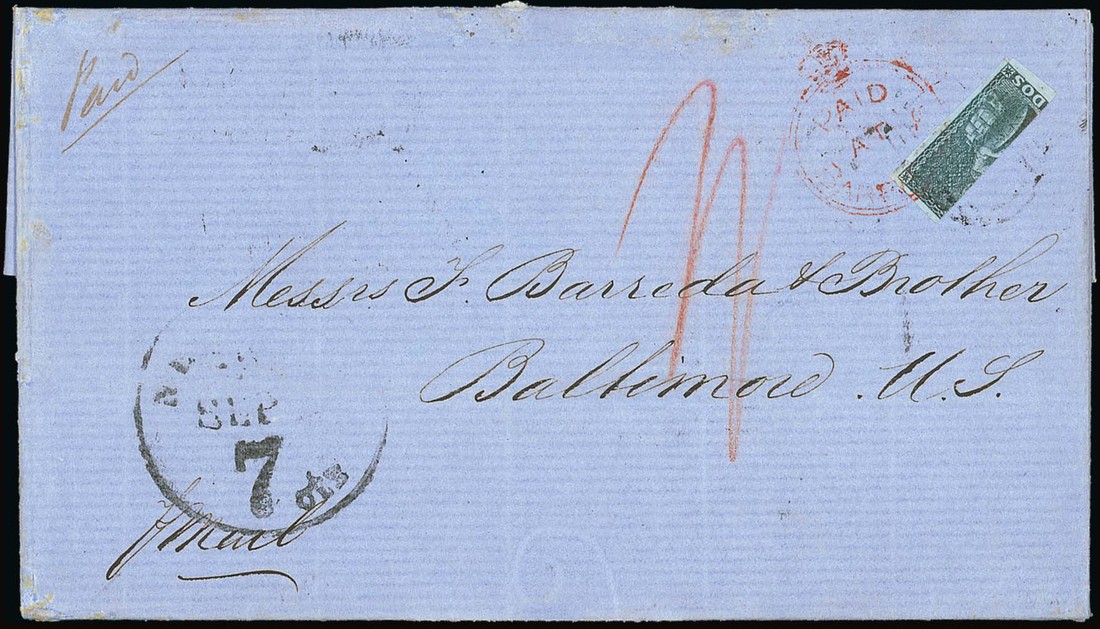 Paid
PAID
AT
DOS
Messrs F. Barreda & Brother
Baltimore U.S.
SEP
7
cts
p Mail